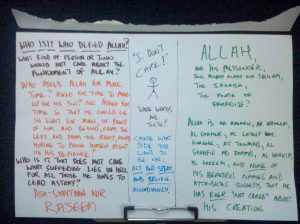 WHO IS IT WHO DEFIED ALLAH?
WHAT KIND OF PERSON OR THING
WOULD NOT CARE ABOUT THE
PUNISHMENT OF ALLAH?
WHO ASKED ALLAH FOR MORE
TIME? ASKED FOR TIME TO MAKE
UP FOR HIS SIN? NO. ASKED FOR
TIME SO THAT HE COULD LIE
IN WAIT FOR MAN IN FRONT
OF HIM AND BEHIND, FROM THE
LEFT AND FROM THE RIGHT
HOPING TO DRAG MANKIND
IN HIS DEFIANCE?
WHO IS IT THAT DOES NOT CARE
WHAT SUFFERING LIES IN HELL
FOR ALL THOSE HE HOPES TO
LEAD ASTRAY?
RAJEEM
I DON'T
CARE!
WHOSE WORDS
ARE
THESE?
CHOOSE WHAT
SIDE YOU
WANT TO
BE ON,
ACT AND SPEAK
AND BELIEVE
ACCORDINGLY.
ALLAH
AND HIS MESSENGER,
SALL ALLAHU ALAYHI WA SALLAM,
THE SAHABA,
THE PEOPLE OF
PARADISE?
ALLAH IS AR RAHMAN, AR RAHEEM,
AL GHAFUR, AL LATEEF, AL
KAREEM, AT TAWWAB,
AL WADUD, AND NONE OF
HIS BEAUTIFUL NAMES AND
ATTRIBUTES SUGGESTS THAT HE
HAS EVER "NOT CARED" ABOUT
HIS CREATION.